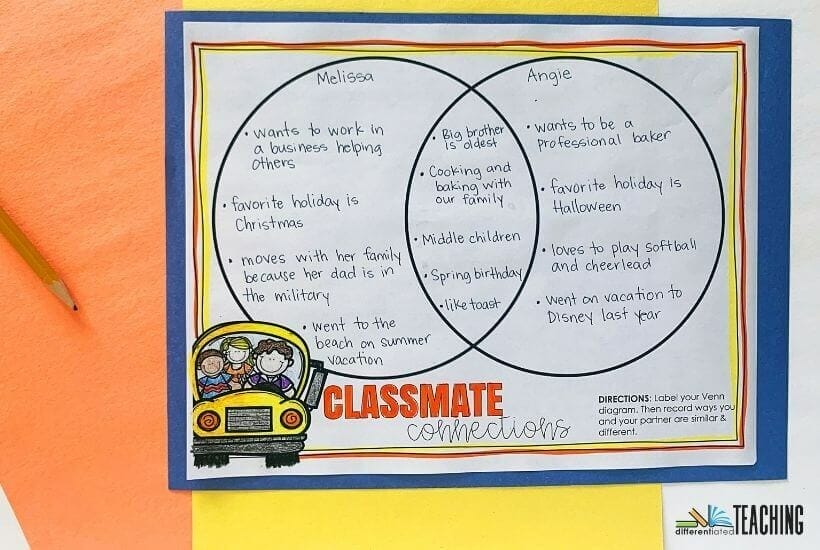 Melissa
• wants to work in
a business helping
others
• favorite holiday is
Christmas
• moves with her family
because her dad is in
the military
• went to the
beach on summer
vacation
• Big brother
is oldest
• Cooking and
baking with
our family
• Middle children
• Spring birthday
• like toast
Angie
• wants to be a
professional baker
• favorite holiday is
Halloween
• loves to play softball
and cheerlead
• went on vacation to
Disney last year
CLASSMATE
connections
DIRECTIONS: Label your Venn
diagram. Then record ways you
and your partner are similar &
different.
differentiated TEACHING